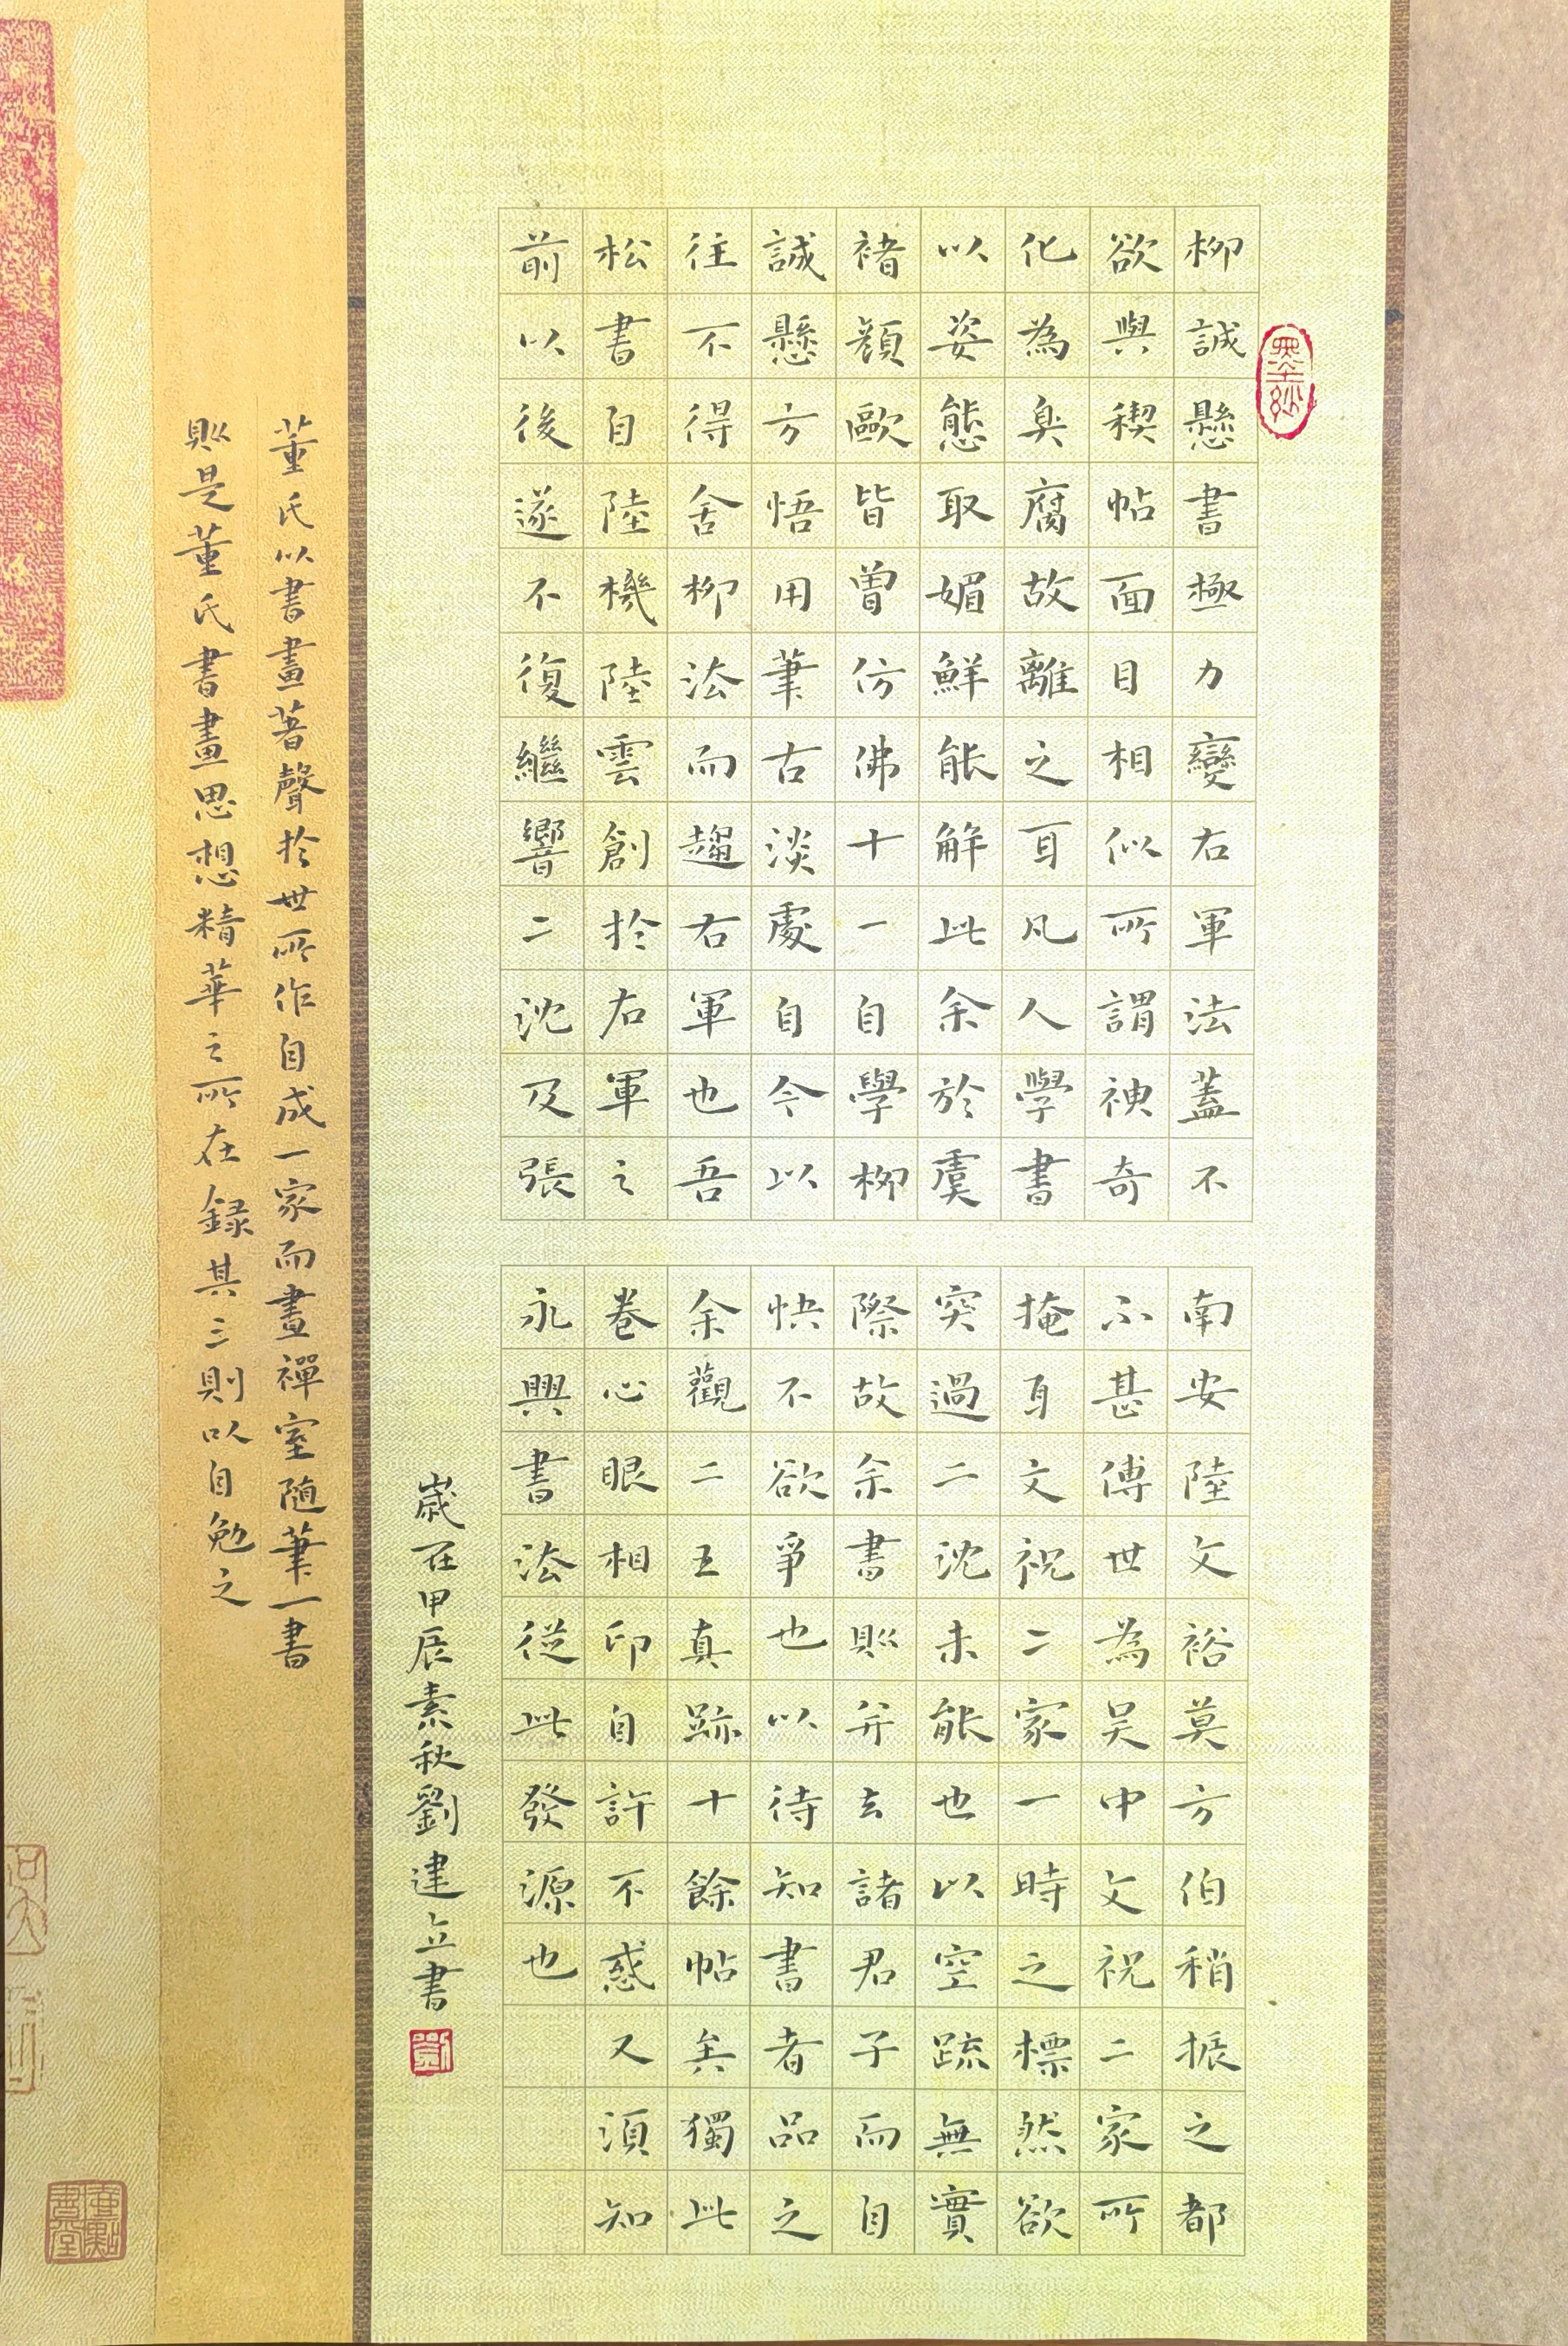 墨妙
柳誠懸書極力變右軍法蓋不
欲與稧帖面目相似所謂神奇
化為臭腐故離之耳凡人學書
以姿態取媚鮮能解此余於虞
褚顏歐皆曾仿佛十一自學柳
誠懸方悟用筆古淡處自今以
往不得舍柳法而趨右軍也吾
松書自陸機陸雲創於右軍之
前以後遂不復繼響二沈及張
南安陸文裕莫方伯稍振之都
不甚傳世為吳中文祝二家所
掩耳文祝二家一時之標然欲
突過二沈未能也以空疏無實
際故余書則并去諸君子而自
快不欲爭也以待知書者品之
余觀二王真跡十餘帖矣獨此
卷心眼相印自許不惑又須知
永興書法從此發源也
歲在甲辰素秋劉建立書
劉
董氏以書畫著聲於世所作自成一家而畫禪室随筆一書
則是董氏書畫思想精華之所在録其三則以自勉之